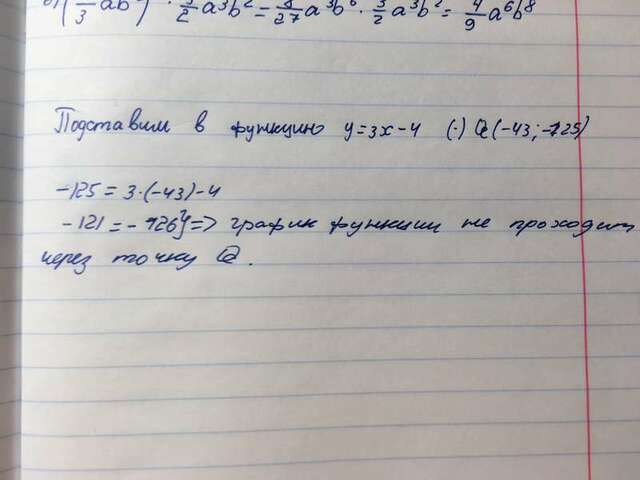 ab) · 3/2 a³b² = 8/27 a³b⁶ · 3/2 a³b² = 4/9 a⁶b⁸
Подставим в функцию y=3x-4 (·) Q(-43; -125)
-125 = 3·(-43)-4
-121 = -129 => график функции не проходит
через точку Q.